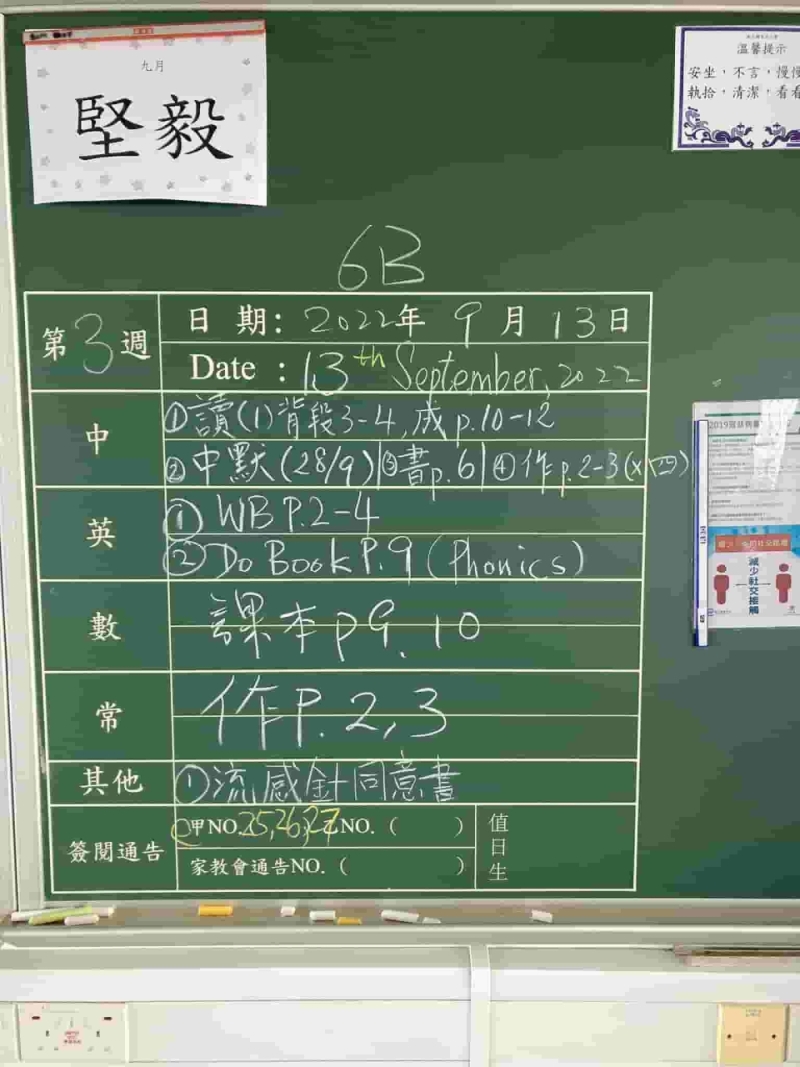 九月
堅毅
溫馨提示
安坐，不言，慢慢
執拾，清潔，看看
6B
第3週
日期：2022年9月13日
Date : 13th September, 2022
中
①讀(1)背段3-4, 成p.10-12
②中默(28/9)|③書p.6|④作p.2-3(x四)
英
① WB P.2-4
② Do Book P.9 (Phonics)
數
課本p9, 10
常
作P.2,3
其他
①流感針同意書
簽閱通告
甲NO.25,26,27乙NO. ( )
家教會通告NO. ( )
值日生
減少社交接觸